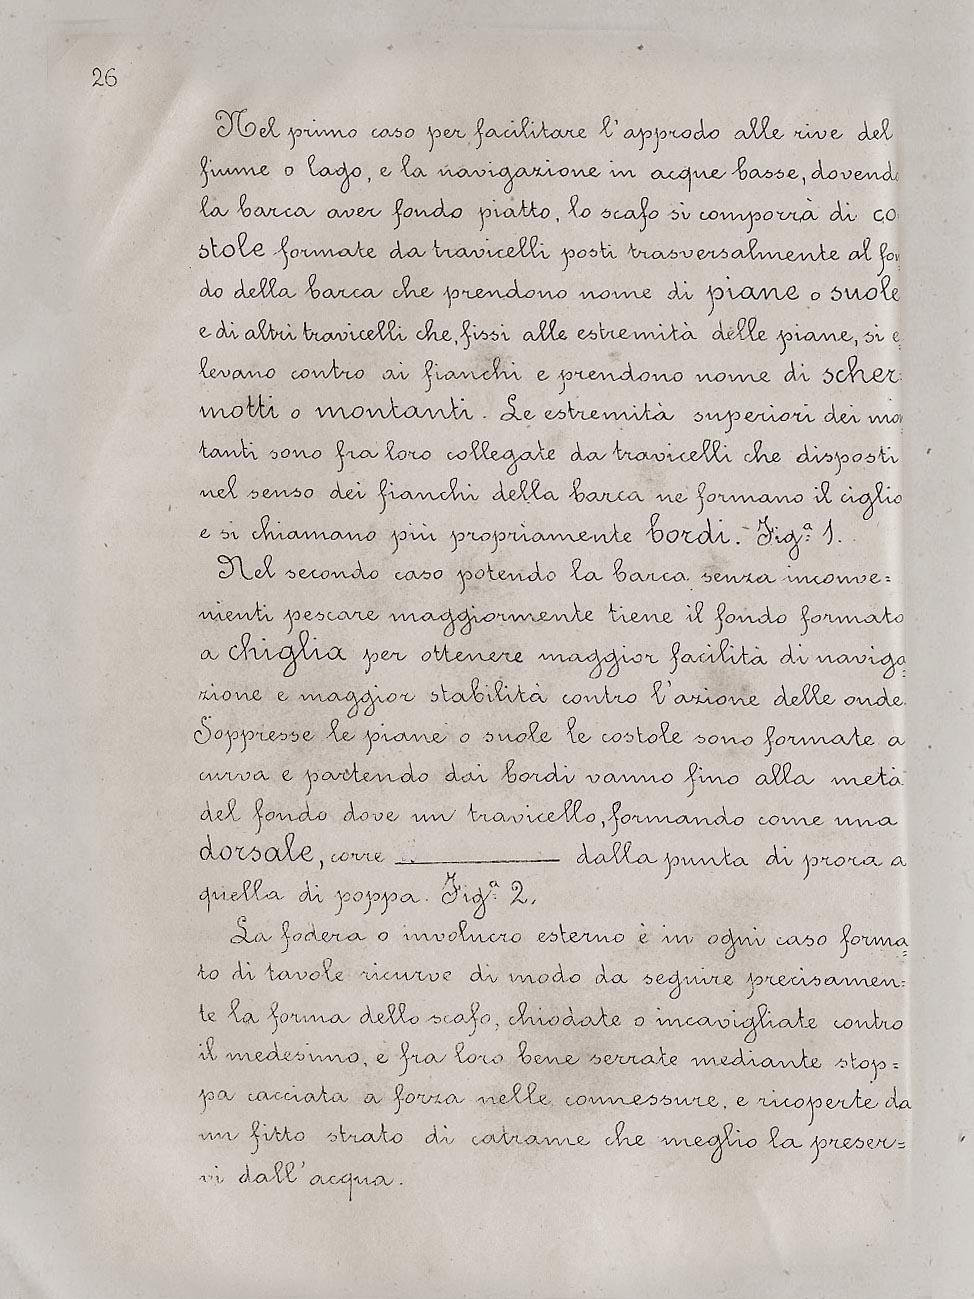 26
Nel primo caso per facilitare l'approdo alle rive del
fiume o lago, e la navigazione in acque basse, dovendo
la barca aver fondo piatto, lo scafo si comporrà di co
stole formate da travicelli posti trasversalmente al fon
do della barca che prendono nome di piane o suole
e di altri travicelli che, fissi alle estremità delle piane, si e
levano contro ai fianchi e prendono nome di scher=
motti o montanti. Le estremità superiori dei mon
tanti sono fra loro collegate da travicelli che disposti
nel senso dei fianchi della barca ne formano il ciglio
e si chiamano più propriamente bordi. - Figª. 1.
Nel secondo caso potendo la barca senza inconve=
nienti pescare maggiormente tiene il fondo formato
a chiglia per ottenere maggior facilità di naviga=
zione e maggior stabilità contro l'azione delle onde.
Soppresse le piane o suole le costole sono formate a
curva e partendo dai bordi vanno fino alla metà
del fondo dove un travicello, formando come una
dorsale, corre ________ dalla punta di prora a
quella di poppa. Figª. 2.
La fodera o involucro esterno è in ogni caso forma=
to di tavole ricurve di modo da seguire precisamen=
te la forma dello scafo, chiodate o incavigliate contro
il medesimo, e fra loro bene serrate mediante stop=
pa cacciata a forza nelle connessure, e ricoperte da
un fitto strato di catrame che meglio la preser=
vi dall'acqua.